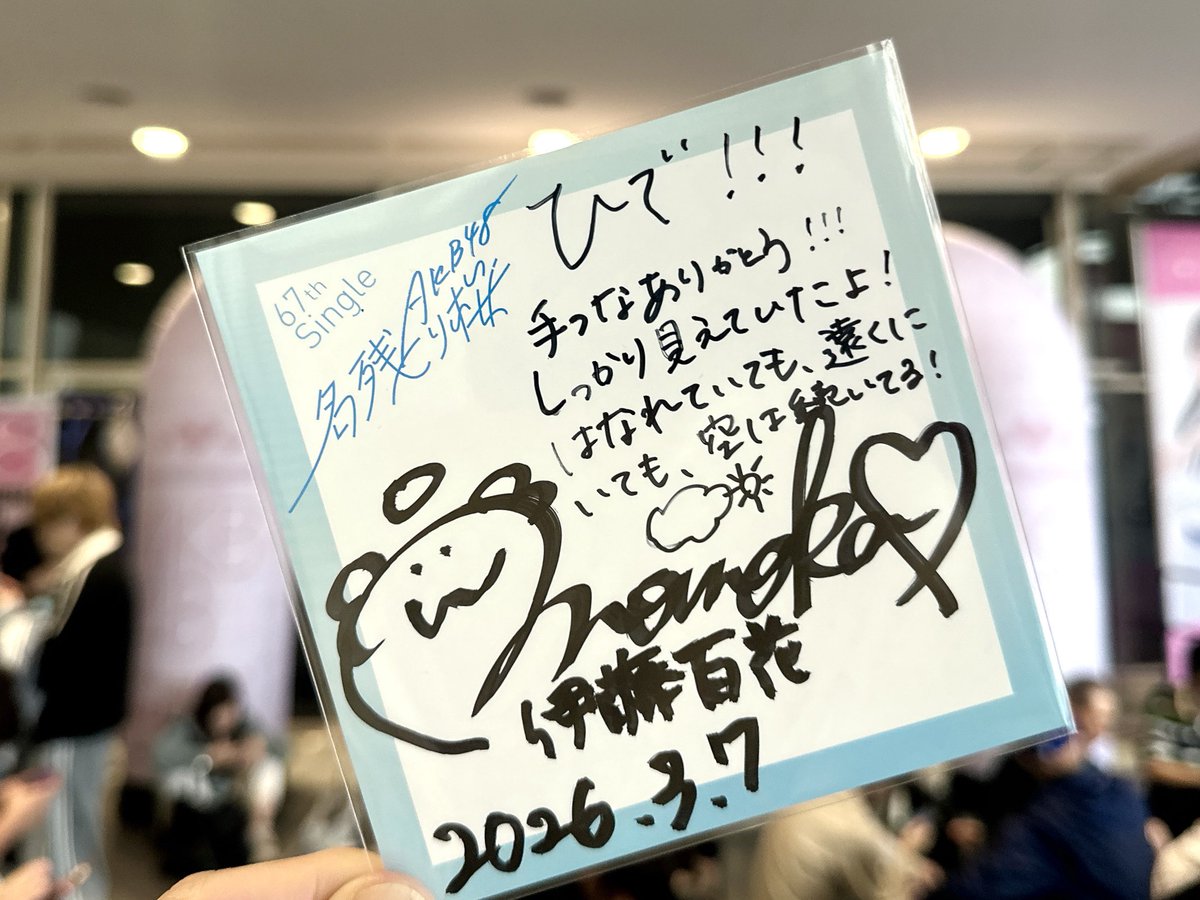 67th
Single
AKB48
名残り桜
ひで!!!
手つなありがとう!!!
しっかり見えていたよ!
はなれていても、遠くに
いても、空は続いてる!
momoka
伊藤百花
2026.3.7